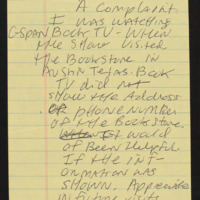 A Complaint.
I was watching
C-SPAN Book TV - When
the show visited
the Bookstore in
Austin Texas. Book
TV did not
show the Address
or phone number
of the Bookstore.
It would
of Been Helpful
If the inf-
ormation was
shown. Appreciate
in future visits